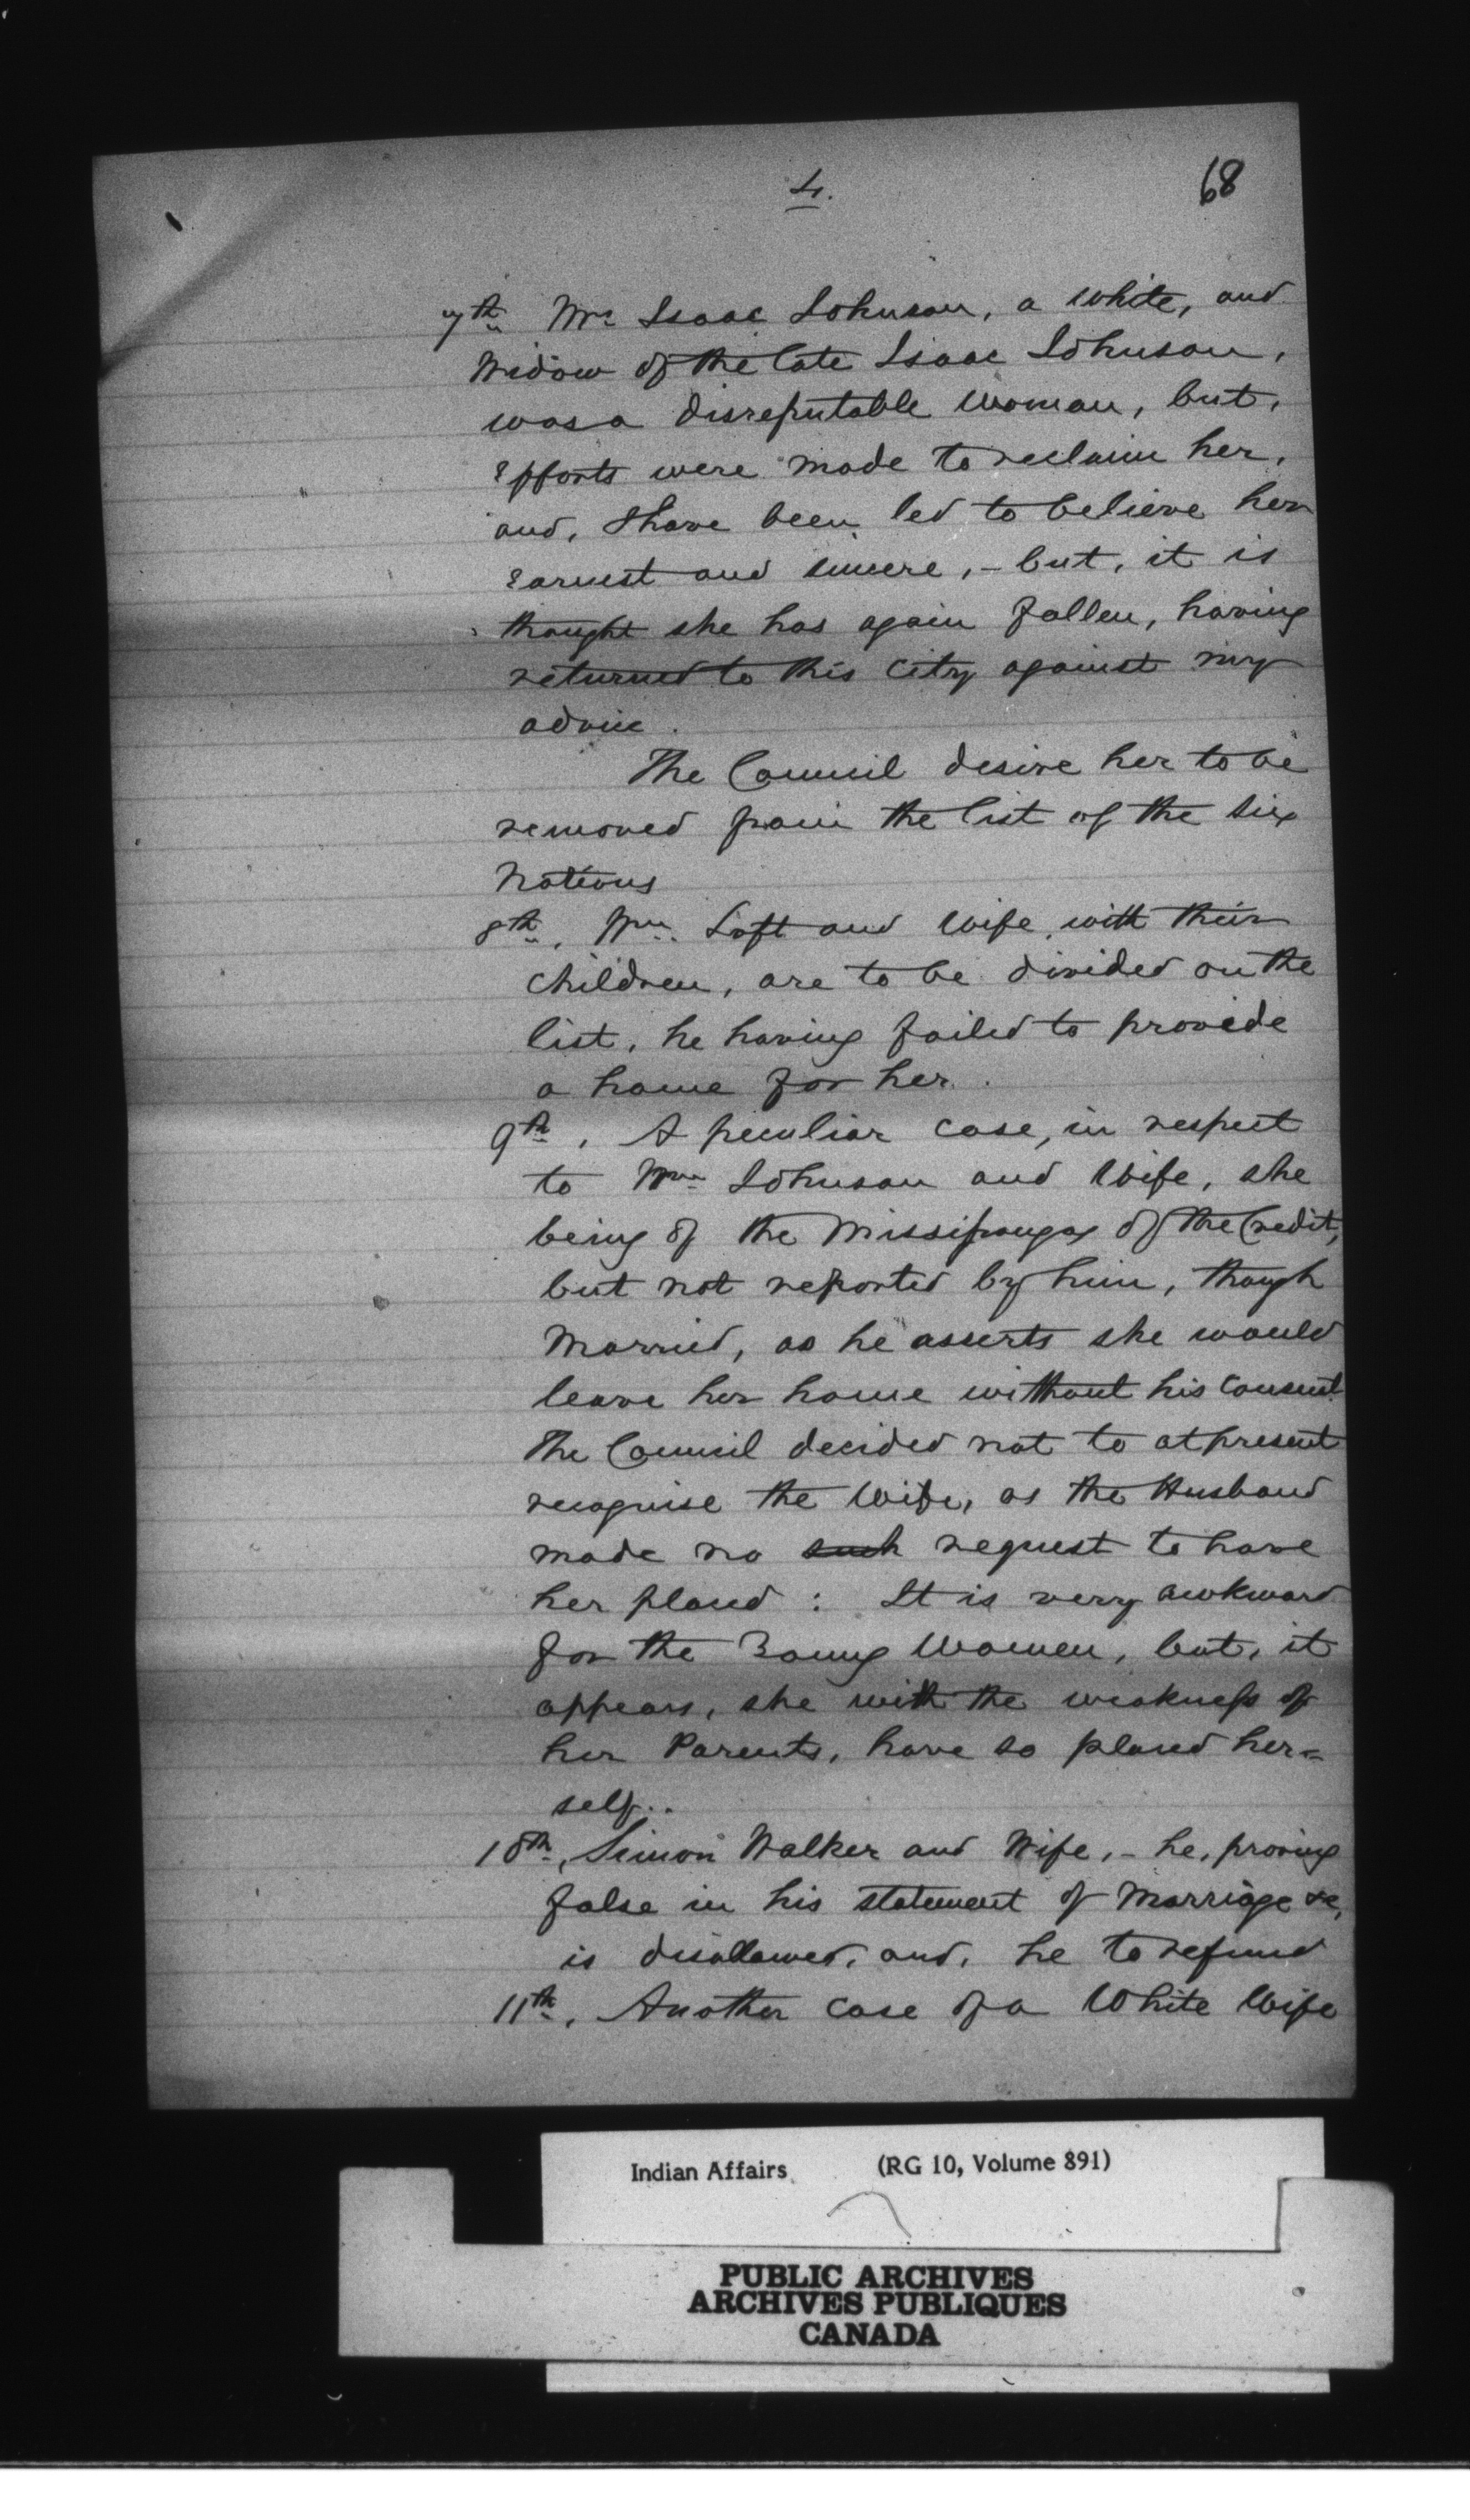 4.
68
7th Mrs Isaac Johnson, a White, and
Widow of the late Isaac Johnson,
was a disreputable Woman, but,
efforts were made to reclaim her,
and, I have been led to believe her
earnest and sincere, - but, it is
thought she has again fallen, having
returned to this City against my
advice.
The Council desire her to be
removed from the list of the Six
Nations
8th, Wm. Loft and Wife, with their
children, are to be divided on the
list, he having failed to provide
a home for her.
9th, A peculiar case, in respect
to Wm Johnson and Wife, she
being of the Missisaugas of the Credit,
but not reported by him, though
Married, as he asserts she would
leave her home without his consent
The Council decided not to at present
recognise the Wife, as the Husband
made no such request to have
her placed : It is very awkward
for the Young Women, but, it
appears, she with the weakness of
her Parents, have so placed her=
self..
10th, Simon Walker and Wife, - he, proving
false in his statement of Marriage &c,
is disallowed, and, he to refund
11th, Another case of a White Wife
Indian Affairs (RG 10, Volume 891)
PUBLIC ARCHIVES
ARCHIVES PUBLIQUES
CANADA